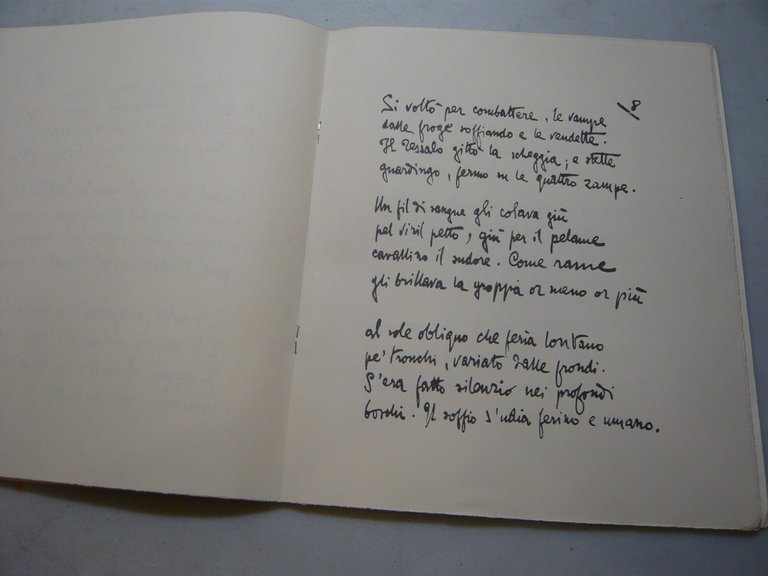 8
Si voltò per combattere, le vampe
dalle froge soffiando e le vendette.
Il Tessalo gittò la scheggia; e stette
guardingo, fermo su le quattro zampe.
Un fil di sangue gli colava giù
pel viril petto, giù per il pelame
cavallino il sudore. Come rame
gli brillava la groppa or meno or più
al sole obliquo che feria lontano
pe' tronchi, variato dalle frondi.
S'era fatto silenzio nei profondi
boschi. Il soffio s'udia ferino e umano.